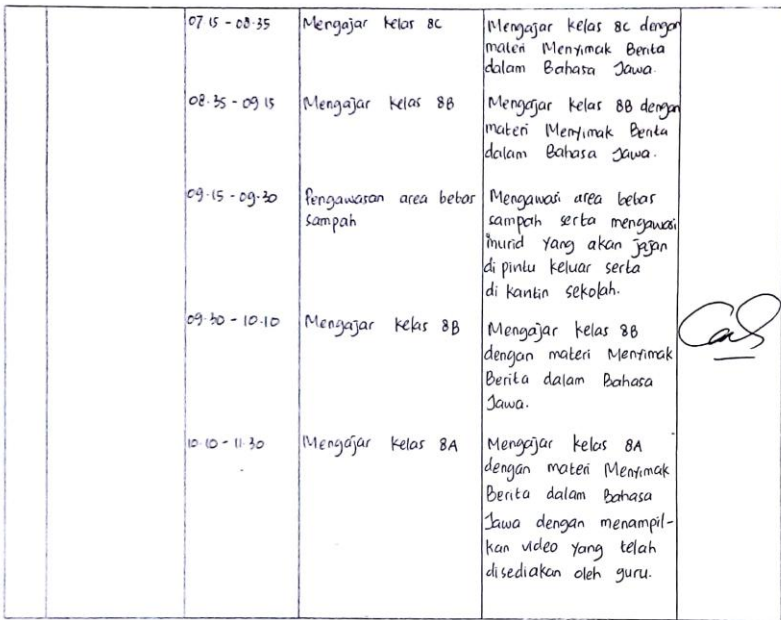 07.15 - 08.35
Mengajar kelas 8C
Mengajar kelas 8C dengan
materi Menyimak Berita
dalam Bahasa Jawa.
08.35 - 09.15
Mengajar kelas 8B
Mengajar kelas 8B dengan
materi Menyimak Berita
dalam Bahasa Jawa.
09.15 - 09.30
Pengawasan area bebas
sampah
Mengawasi area bebas
sampah serta mengawasi
murid yang akan jajan
di pintu keluar serta
di kantin sekolah.
09.30 - 10.10
Mengajar kelas 8B
Mengajar kelas 8B
dengan materi Menyimak
Berita dalam Bahasa
Jawa.
10.10 - 11.30
Mengajar kelas 8A
Mengajar kelas 8A
dengan materi Menyimak
Berita dalam Bahasa
Jawa dengan menampil-
kan video yang telah
disediakan oleh guru.